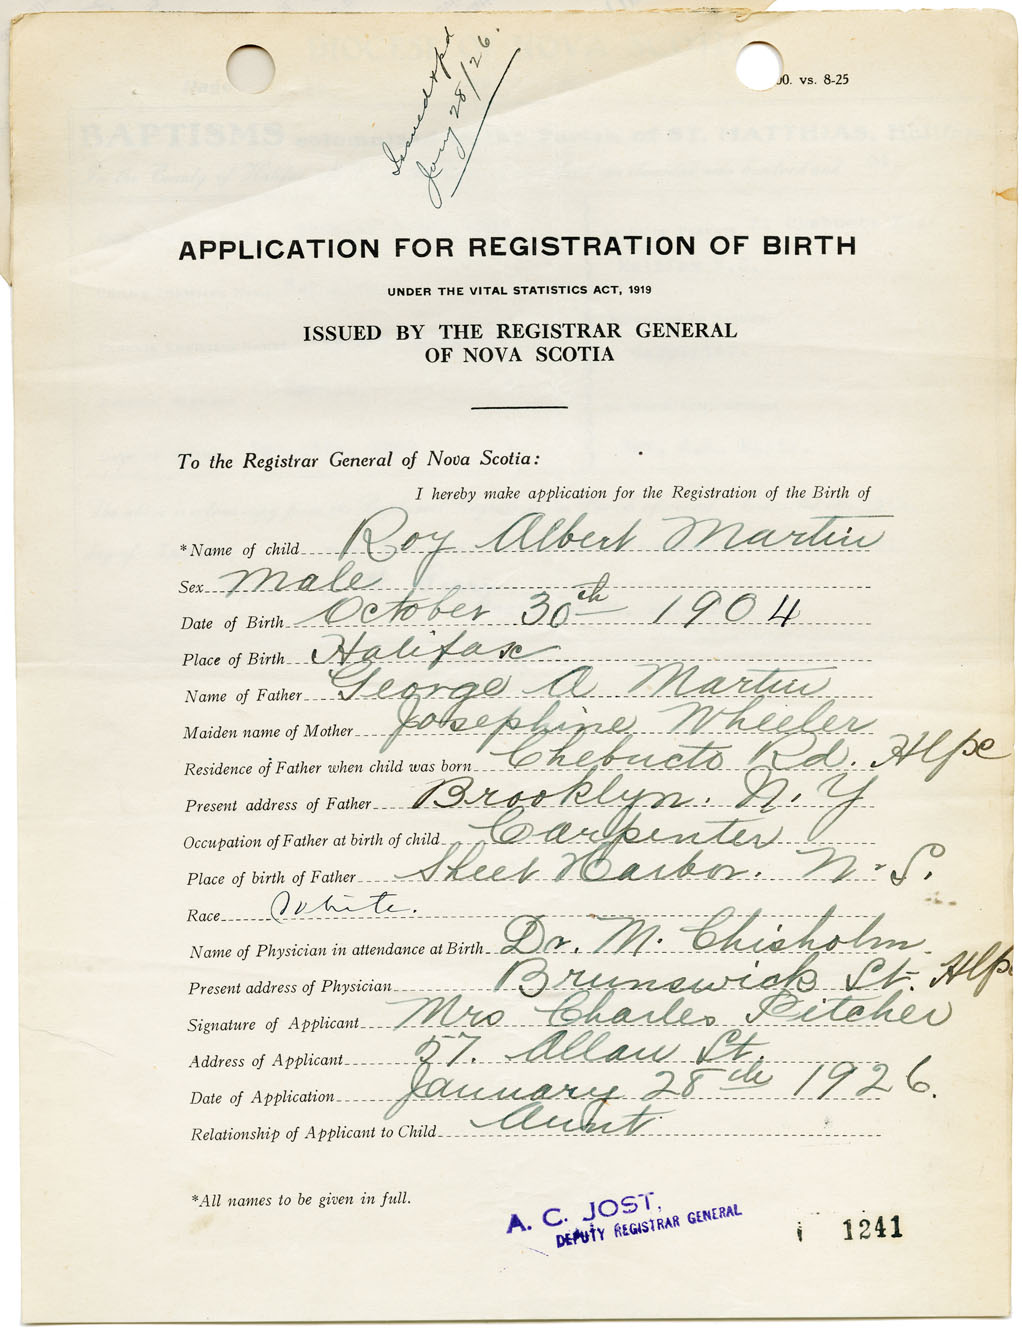 Issued & pd
Jany 28/26.
00. vs. 8-25
APPLICATION FOR REGISTRATION OF BIRTH
UNDER THE VITAL STATISTICS ACT, 1919
ISSUED BY THE REGISTRAR GENERAL
OF NOVA SCOTIA
To the Registrar General of Nova Scotia:
I hereby make application for the Registration of the Birth of
*Name of child Roy Albert Martin
Sex Male
Date of Birth October 30th 1904
Place of Birth Halifax
Name of Father George A Martin
Maiden name of Mother Josephine Wheeler
Residence of Father when child was born Chebucto Rd. Hlfx
Present address of Father Brooklyn. N. Y
Occupation of Father at birth of child Carpenter
Place of birth of Father Sheet Harbor. N. S.
Race White.
Name of Physician in attendance at Birth Dr. M. Chisholm
Present address of Physician Brunswick St. Hlfx
Signature of Applicant Mrs Charles Pitcher
Address of Applicant 57. Allan St.
Date of Application January 28th 1926.
Relationship of Applicant to Child Aunt
*All names to be given in full.
A. C. JOST,
DEPUTY REGISTRAR GENERAL
1241